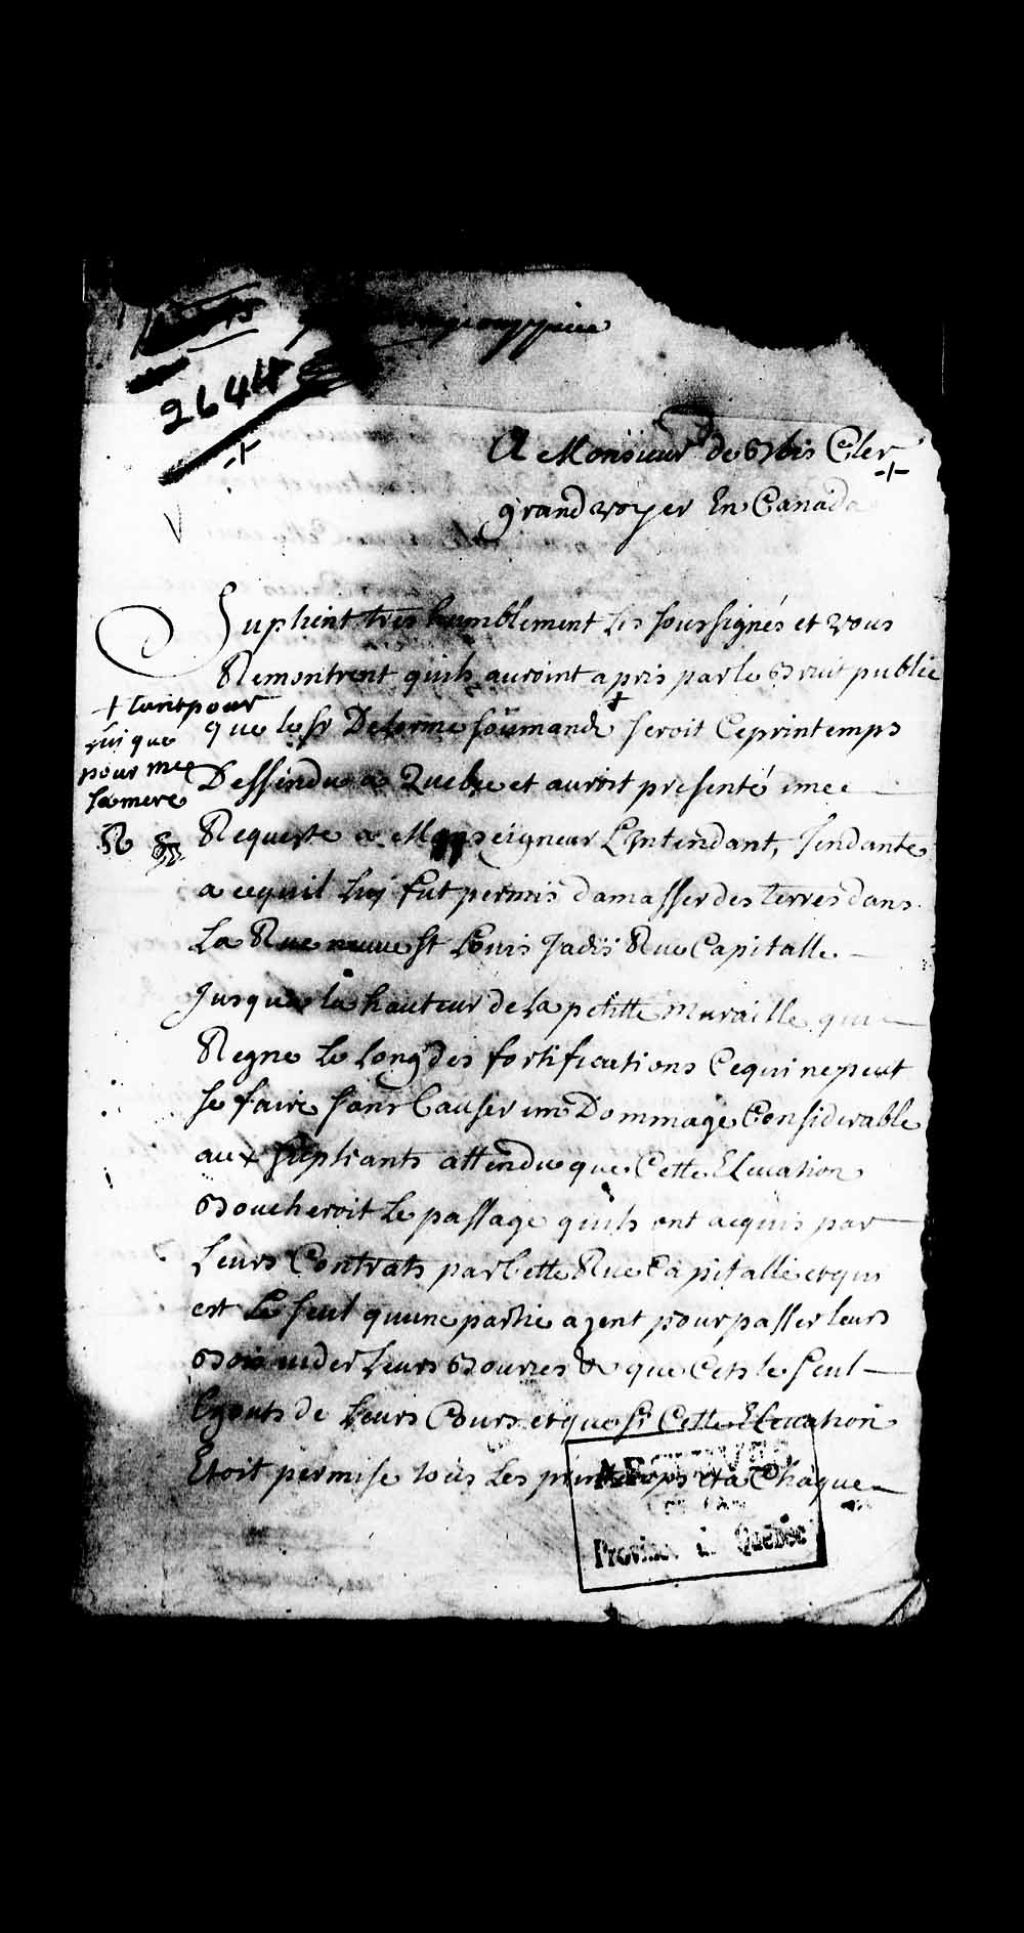 2644
A Monsieur de Bois Cler
grand voyer En Canada
Suplient tres humblement Les soussignés et vous
Remontrent quils auroint apris par le Bruit public
que le Sr Delorme soümande seroit Ce printemps
+ tant pour
lui que
pour me
sa mere
Dessendu a Quebec et auroit presenté une
Requeste a Monseigneur L'Intendant, tendante
a ce quil Luy fut permis damasser des terres dans
La Rue neuve St Louis Jadis Rue Capitalle
Jusqua la hauteur de la petitte muraille qui
Regne Le long des fortifications Ce qui ne peut
se faire sans Causer un Dommage Considerable
aux supliants attendu que Cette Elevation
Boucheroit Le passage quils ont acquis par
Leurs Contrats par Cette Rue Capitalle et qui
est Le seul qune partie ayent pour passer leurs
Bois vuder Leurs Bourres & que C'ets le seul
Egouts de Leurs Cours et que si Cette Elevation
Etoit permise tous Les printemps et a Chaque
ARCHIVES
Province de Québec